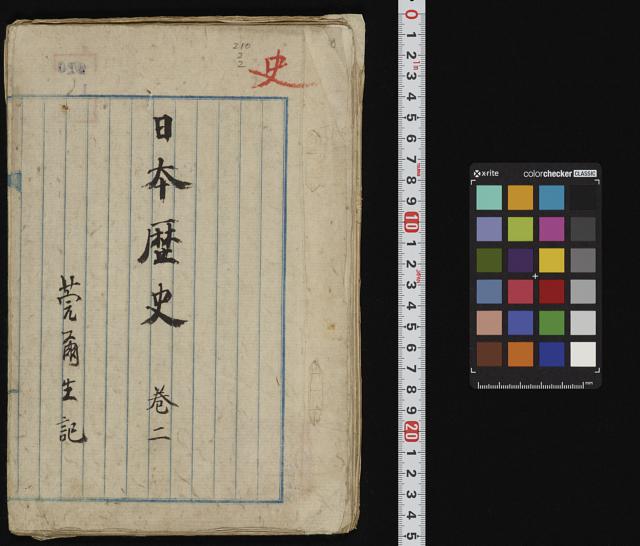 史
210
2
2
日本歴史 巻二
莞爾生記
x-rite
colorchecker CLASSIC
mm
0
1
2
3
4
5
6
7
8
9
10
1
2
3
4
5
6
7
8
9
20
1
2
3
4
5